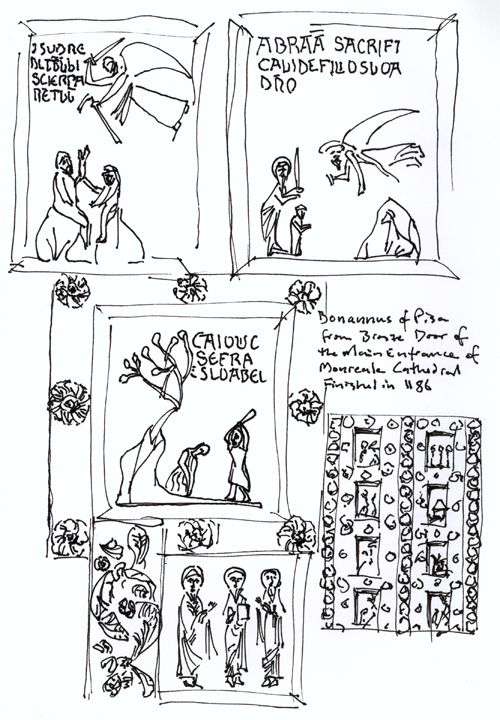 ABRAÃ SACRIFI
CAVIDEFILIOSUOA
DÑO
CAIOUC
SEFRA
ESLOABEL
Bonannus of Pisa
from Bronze Door of
the Main Entrance of
Monreale Cathedral
Finished in 1186